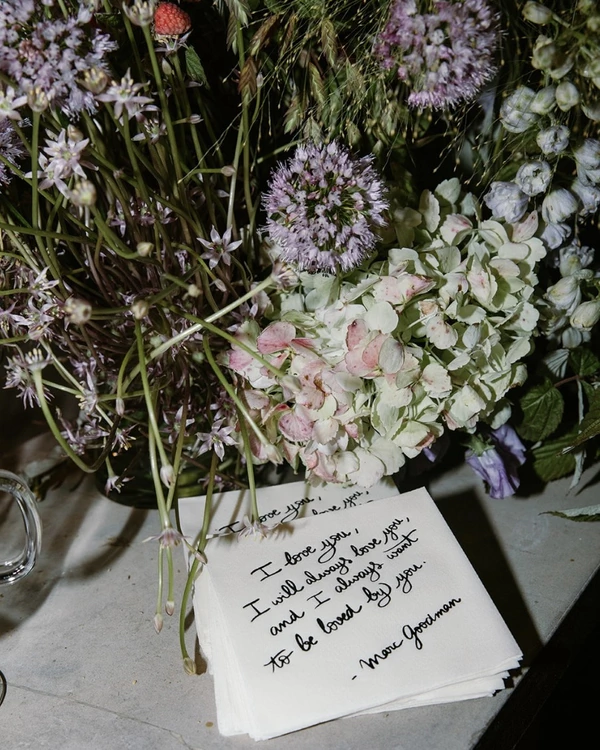 I love you,
love you,
I love you,
I will always love you,
and I always want
to be loved by you.
- Marc Goodman